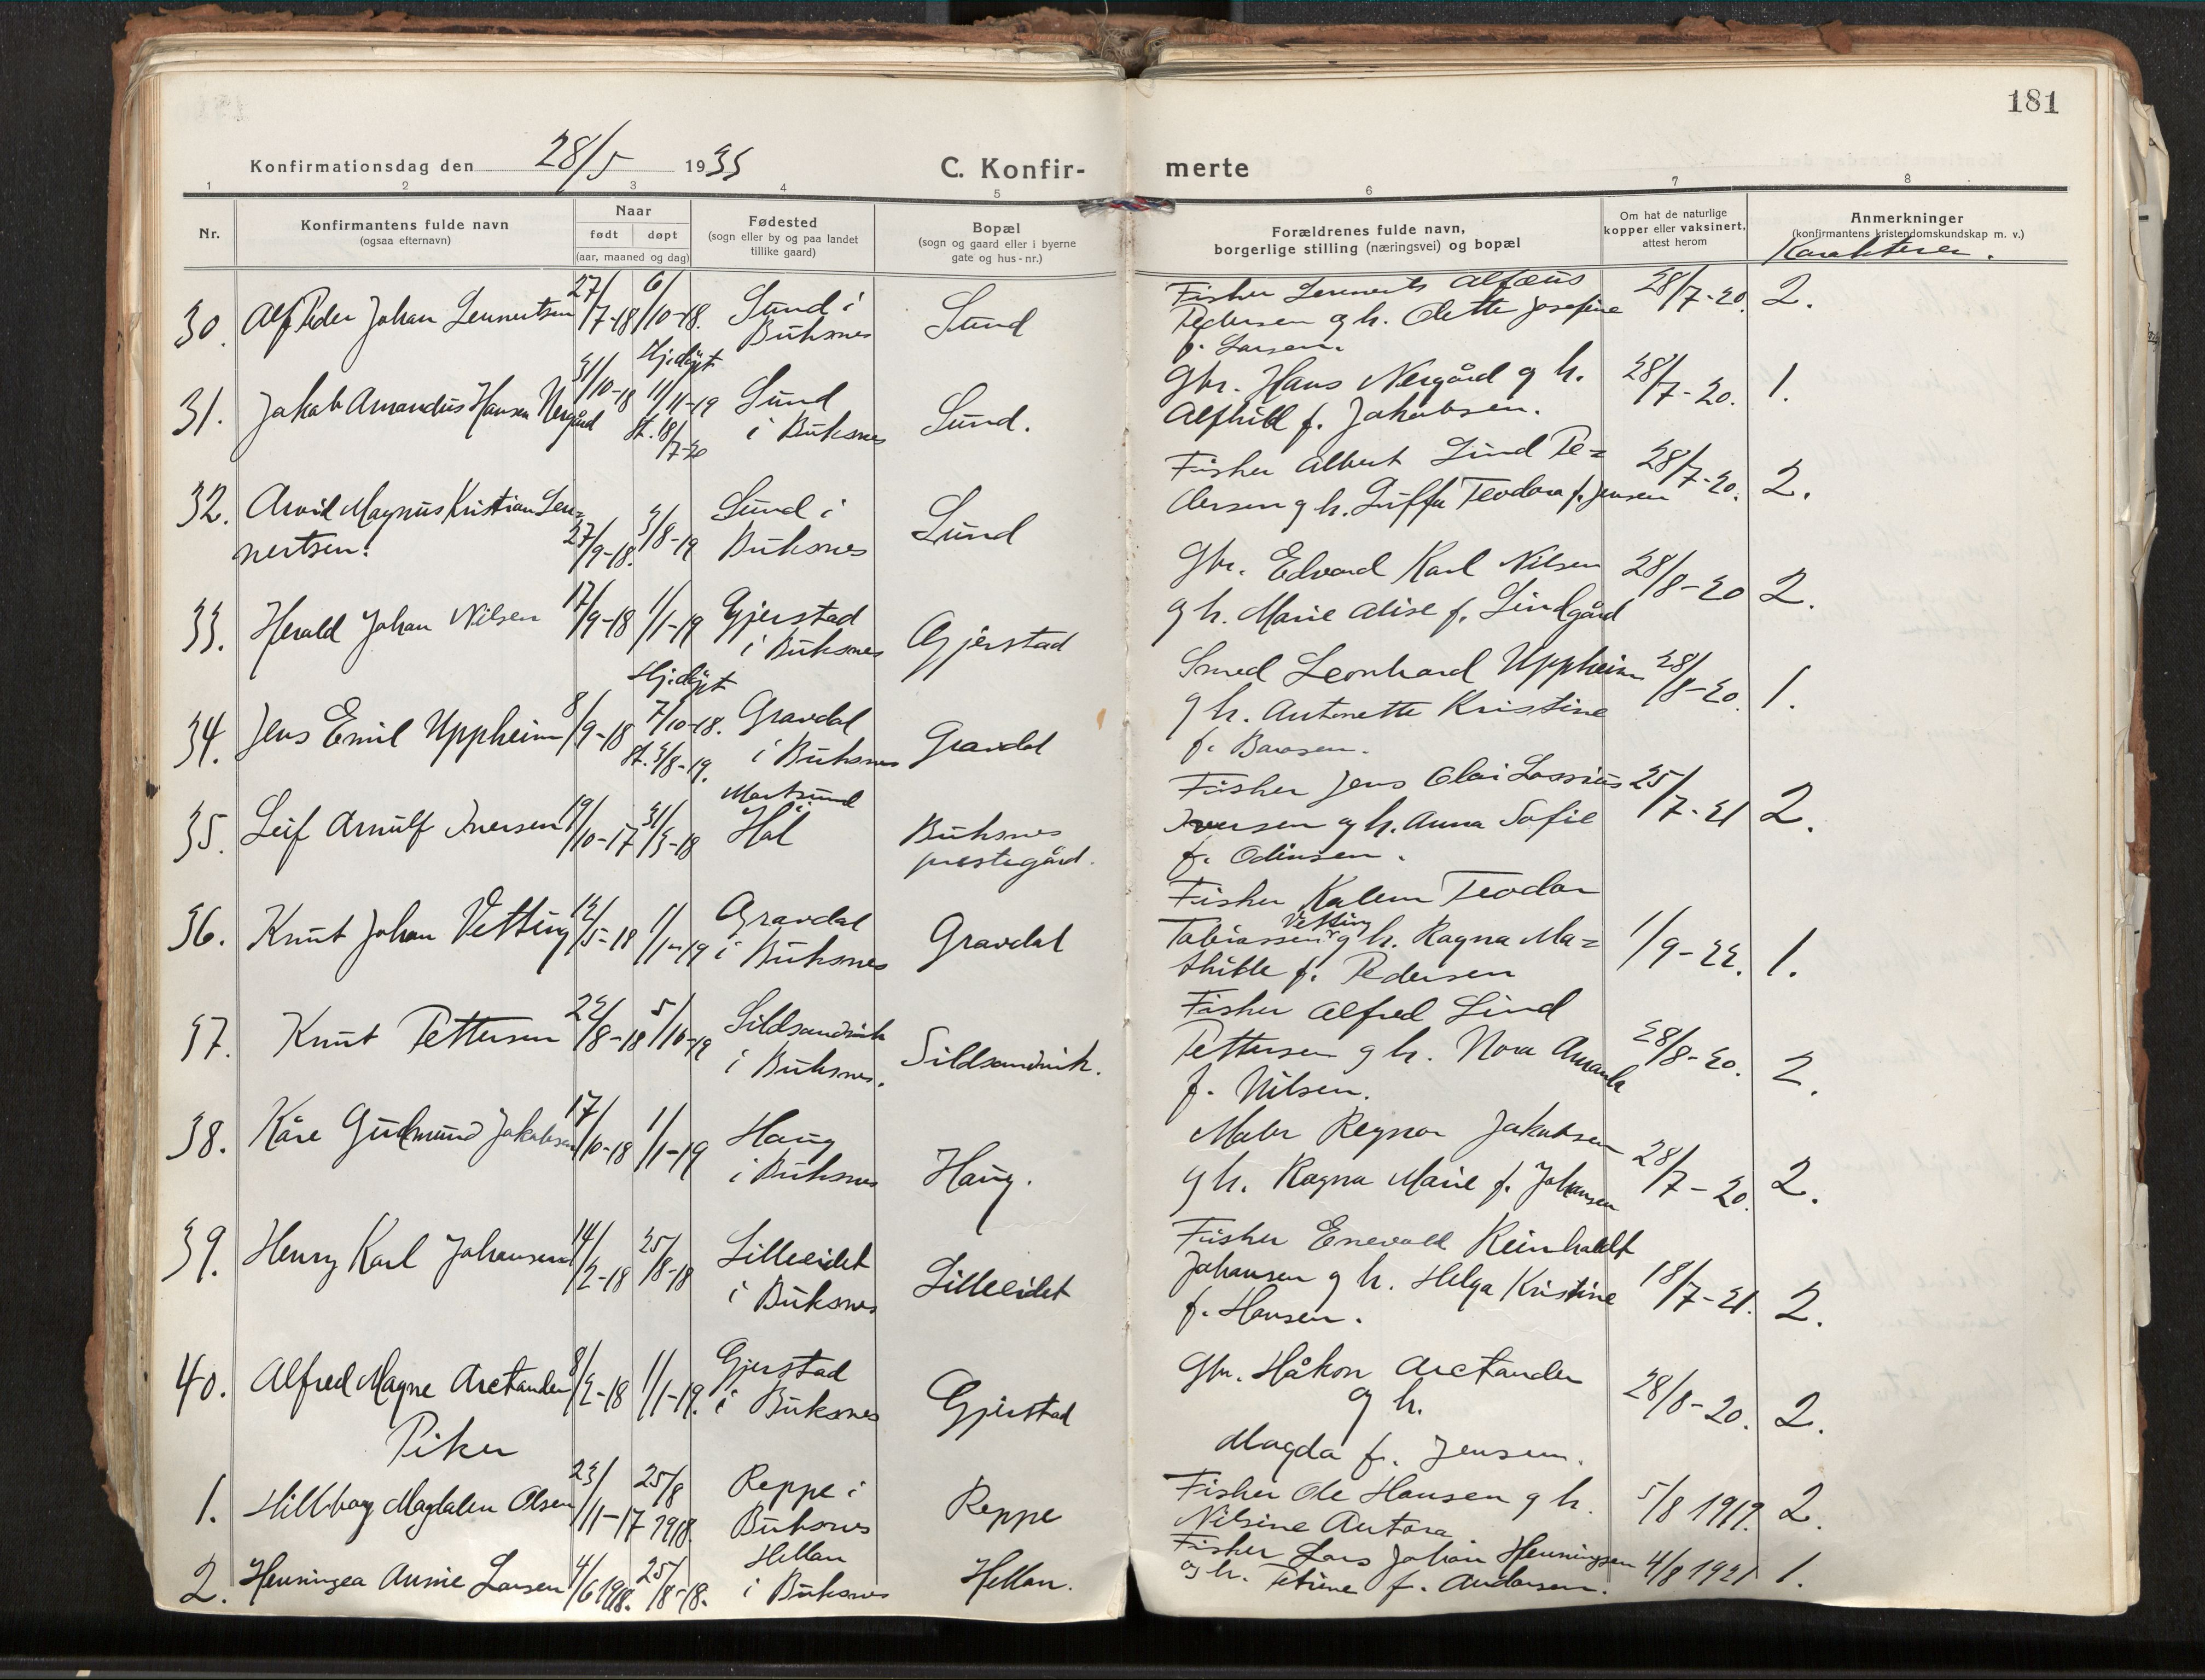 181
Konfirmationsdag den 28/5 1933
C. Konfir- merte
1 2 3 4 5 6 7 8
Nr.
Konfirmantens fulde navn
(ogsaa efternavn)
Naar
født døpt
(aar, maaned og dag)
Fødested
(sogn eller by og paa landet
tillike gaard)
Bopæl
(sogn og gaard eller i byerne
gate og hus-nr.)
Forældrenes fulde navn,
borgerlige stilling (næringsvei) og bopæl
Om hat de naturlige
kopper eller vaksinert,
attest herom
Anmerkninger
(konfirmantens kristendomskundskap m. v.)
Karakterer.
30. Alf Peder Johan Lennertsen 27/7-18 6/10-18. Sund i
Buksnes
Sund
Fisker Lennerts Alfæus
Pedersen og h. Odette Josefine
f. Larsen.
28/7-20. 2.
31. Jakob Amandus Hansen Nergård 31/10-18 Hj.døpt
11/11-19
St. 18/7-20
Sund
i Buksnes
Sund.
Gbr. Hans Nergård og h.
Alfhild f. Jakobsen.
28/7-20. 1.
32. Arvid Magnus Kristian Len=
nertsen. 27/9-18. 3/8-19
Sund i
Buksnes
Sund
Fisker Albert Lind Pe=
dersen og h. Teodora f. Jensen
28/7-20. 2.
33. Herald Johan Nilsen 17/9-18 1/1-19 Gjerstad
i Buksnes
Gjerstad
Gbr. Edvard Karl Nilsen
og h. Marie Alise f. Lindgård
28/8-20 2.
34. Jens Emil Uppheim 8/9-18 Hj.døpt
7/10-18.
St. 3/8-19.
Gravdal
i Buksnes
Gravdal
Smed Leonhard Uppheim
og h. Antonette Kristine
f. Barosen.
28/8-20. 1.
35. Leif Arnulf Iversen 19/10-17 31/3-18
Mortsund
Hol
Buksnes
prestegård.
Fisker Jens Olai Lassius
Iversen og h. Anna Sofie
f. Odinsen.
25/7-21 2.
36. Knut Johan Vetting 12/5-18 1/1-19 Gravdal
i Buksnes
Gravdal
Fisker Kalem Teodor
Vetting
Tobiassen og h. Ragna Ma=
thilde f. Pedersen
1/9-22. 1.
37. Knut Pettersen 22/8-18 5/10-19 Sildsandvik
i Buksnes.
Sildsandvik.
Fisker Alfred Lind
Pettersen og h. Nora Amanda
f. Nilsen.
28/8-20. 2.
38. Kåre Gudmund Jakobsen 17/10-18 1/1-19 Haug
i Buksnes
Haug.
Maler Regnor Jakobsen
og h. Ragna Marie f. Johansen
28/7-20. 2.
39. Henry Karl Johansen 14/2-18 25/8-18 Lilleeidet
i Buksnes
Lilleeidet
Fisker Enevald Reinholdt
Johansen og h. Helga Kristine
f. Hansen.
18/7-21. 2.
40. Alfred Magne Arctander 8/2-18 1/1-19. Gjerstad
i Buksnes
Gjerstad
Gbr. Håkon Arctander
og h.
Magda f. Jensen.
28/8-20. 2.
Piker
1. Hildborg Magdalen Olsen 23/11-17 25/8 1918. Reppe i
Buksnes
Reppe
Fisker Ole Hansen og h.
Nilsine Antora
5/8 1919. 2.
2. Henningea Annie Larsen 4/6 1918. 25/8-18.
Hellan
i Buksnes
Hellan.
Fisker Lars Johan Henningsen
og h. Petrine f. Andersen.
4/8 1921 1.